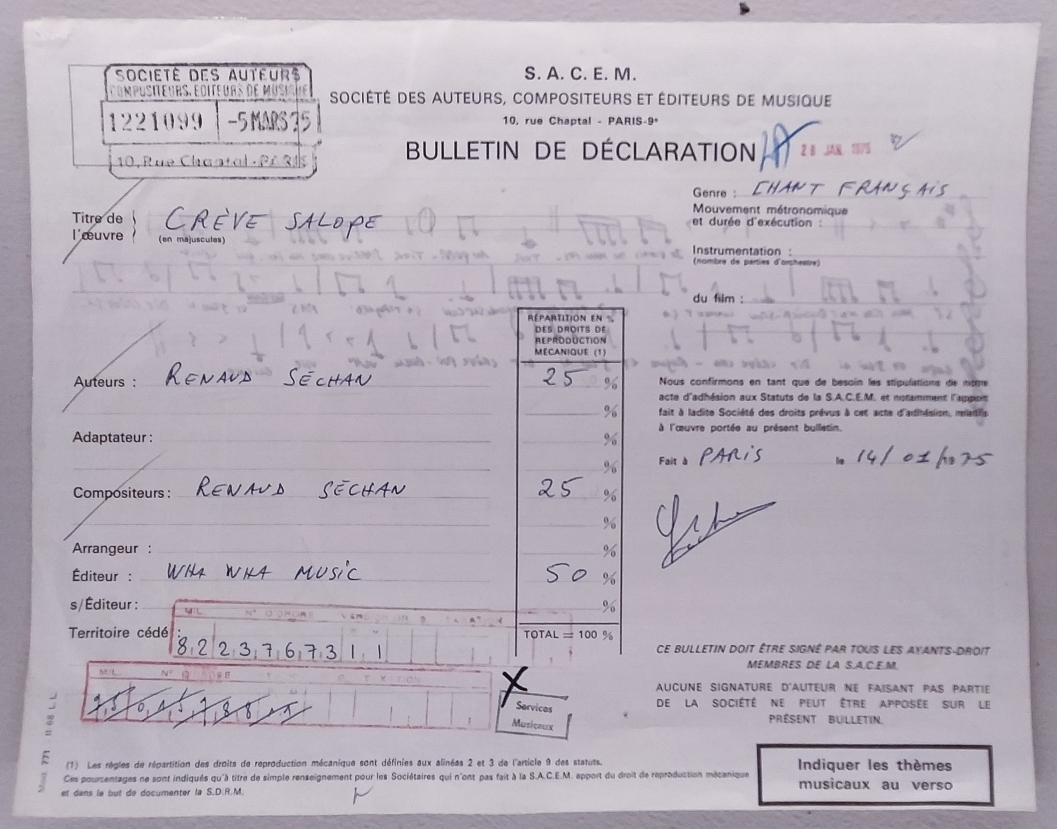 SOCIETÉ DES AUTEURS
COMPOSITEURS, EDITEURS DE MUSIQUE
1221099 -5 MARS 75
10, Rue Chaptal - PARIS
S. A. C. E. M.
SOCIÉTÉ DES AUTEURS, COMPOSITEURS ET ÉDITEURS DE MUSIQUE
10, rue Chaptal - PARIS-9e
BULLETIN DE DÉCLARATION
28 JAN. 1975
Titre de l'œuvre } CRÈVE SALOPE
(en majuscules)
Genre : CHANT FRANÇAIS
Mouvement métronomique
et durée d'exécution :
Instrumentation :
(nombre de parties d'orchestre)
du film :
RÉPARTITION EN %
DES DROITS DE
REPRODUCTION
MÉCANIQUE (1)
Auteurs : RENAUD SÉCHAN 25 %
%
Adaptateur : %
%
Compositeurs : RENAUD SÉCHAN 25 %
%
Arrangeur : %
Éditeur : WHA WHA MUSIC 50 %
s/Éditeur : %
Territoire cédé : TOTAL = 100 %
Nous confirmons en tant que de besoin les stipulations de notre
acte d'adhésion aux Statuts de la S.A.C.E.M. et notamment l'apport
fait à ladite Société des droits prévus à cet acte d'adhésion, relatifs
à l'œuvre portée au présent bulletin.
Fait à PARIS le 14/01/1975
MIL. N° D'ORDRE
8 2 2 3 7 6 7 3 1 1
MIL. N° D'ORDRE
Services
Musicaux
CE BULLETIN DOIT ÊTRE SIGNÉ PAR TOUS LES AYANTS-DROIT
MEMBRES DE LA S.A.C.E.M.
AUCUNE SIGNATURE D'AUTEUR NE FAISANT PAS PARTIE
DE LA SOCIÉTÉ NE PEUT ÊTRE APPOSÉE SUR LE
PRÉSENT BULLETIN.
Indiquer les thèmes
musicaux au verso
(1) Les règles de répartition des droits de reproduction mécanique sont définies aux alinéas 2 et 3 de l'article 9 des statuts.
Ces pourcentages ne sont indiqués qu'à titre de simple renseignement pour les Sociétaires qui n'ont pas fait à la S.A.C.E.M. apport du droit de reproduction mécanique
et dans le but de documenter la S.D.R.M.
Mod. 771 11 68 L. L.